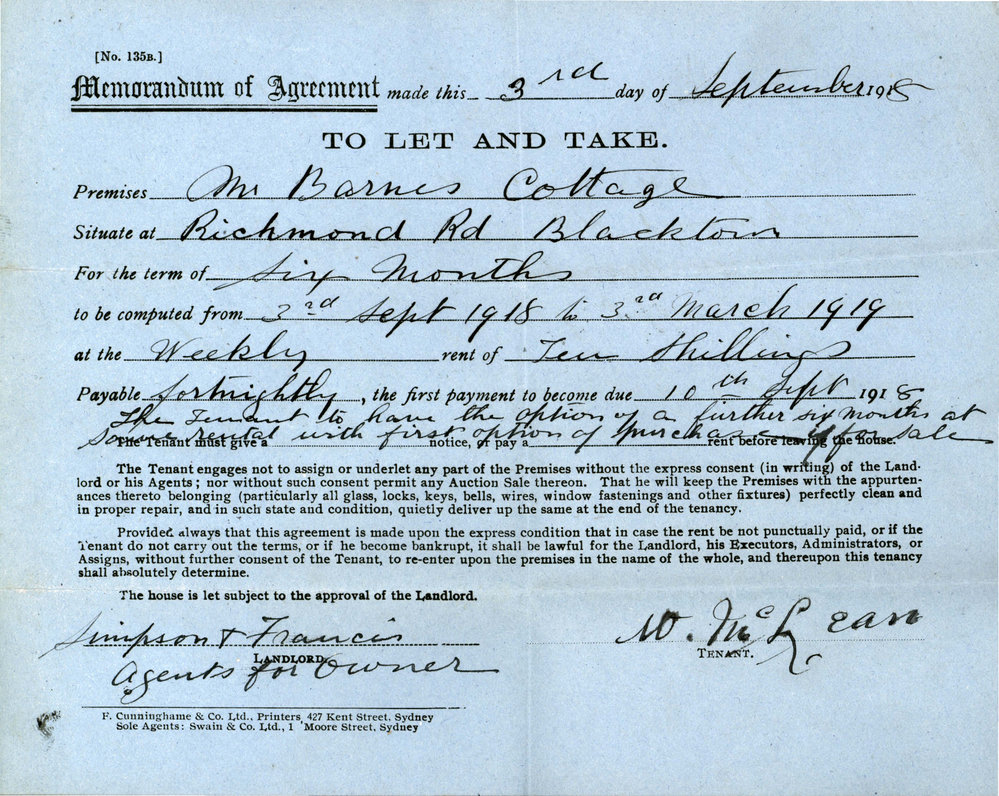 [No. 135B.]
Memorandum of Agreement made this 3rd day of September 1918
TO LET AND TAKE.
Premises Mr Barnes Cottage
Situate at Richmond Rd Blacktown
For the term of Six Months
to be computed from 3rd Sept 1918 to 3rd March 1919
at the Weekly rent of Ten Shillings
Payable fortnightly, the first payment to become due 10th Sept 1918
The Tenant to have the option of a further six months at
same rental with first option of purchase if for sale
The Tenant must give a notice, or pay a rent before leaving the house.
The Tenant engages not to assign or underlet any part of the Premises without the express consent (in writing) of the Land-
lord or his Agents; nor without such consent permit any Auction Sale thereon. That he will keep the Premises with the appurten-
ances thereto belonging (particularly all glass, locks, keys, bells, wires, window fastenings and other fixtures) perfectly clean and
in proper repair, and in such state and condition, quietly deliver up the same at the end of the tenancy.
Provided always that this agreement is made upon the express condition that in case the rent be not punctually paid, or if the
Tenant do not carry out the terms, or if he become bankrupt, it shall be lawful for the Landlord, his Executors, Administrators, or
Assigns, without further consent of the Tenant, to re-enter upon the premises in the name of the whole, and thereupon this tenancy
shall absolutely determine.
The house is let subject to the approval of the Landlord.
Simpson & Francis
LANDLORD.
Agents for Owner
W. McLean
TENANT.
F. Cunninghame & Co. Ltd., Printers, 427 Kent Street, Sydney
Sole Agents: Swain & Co. Ltd., 1 Moore Street, Sydney